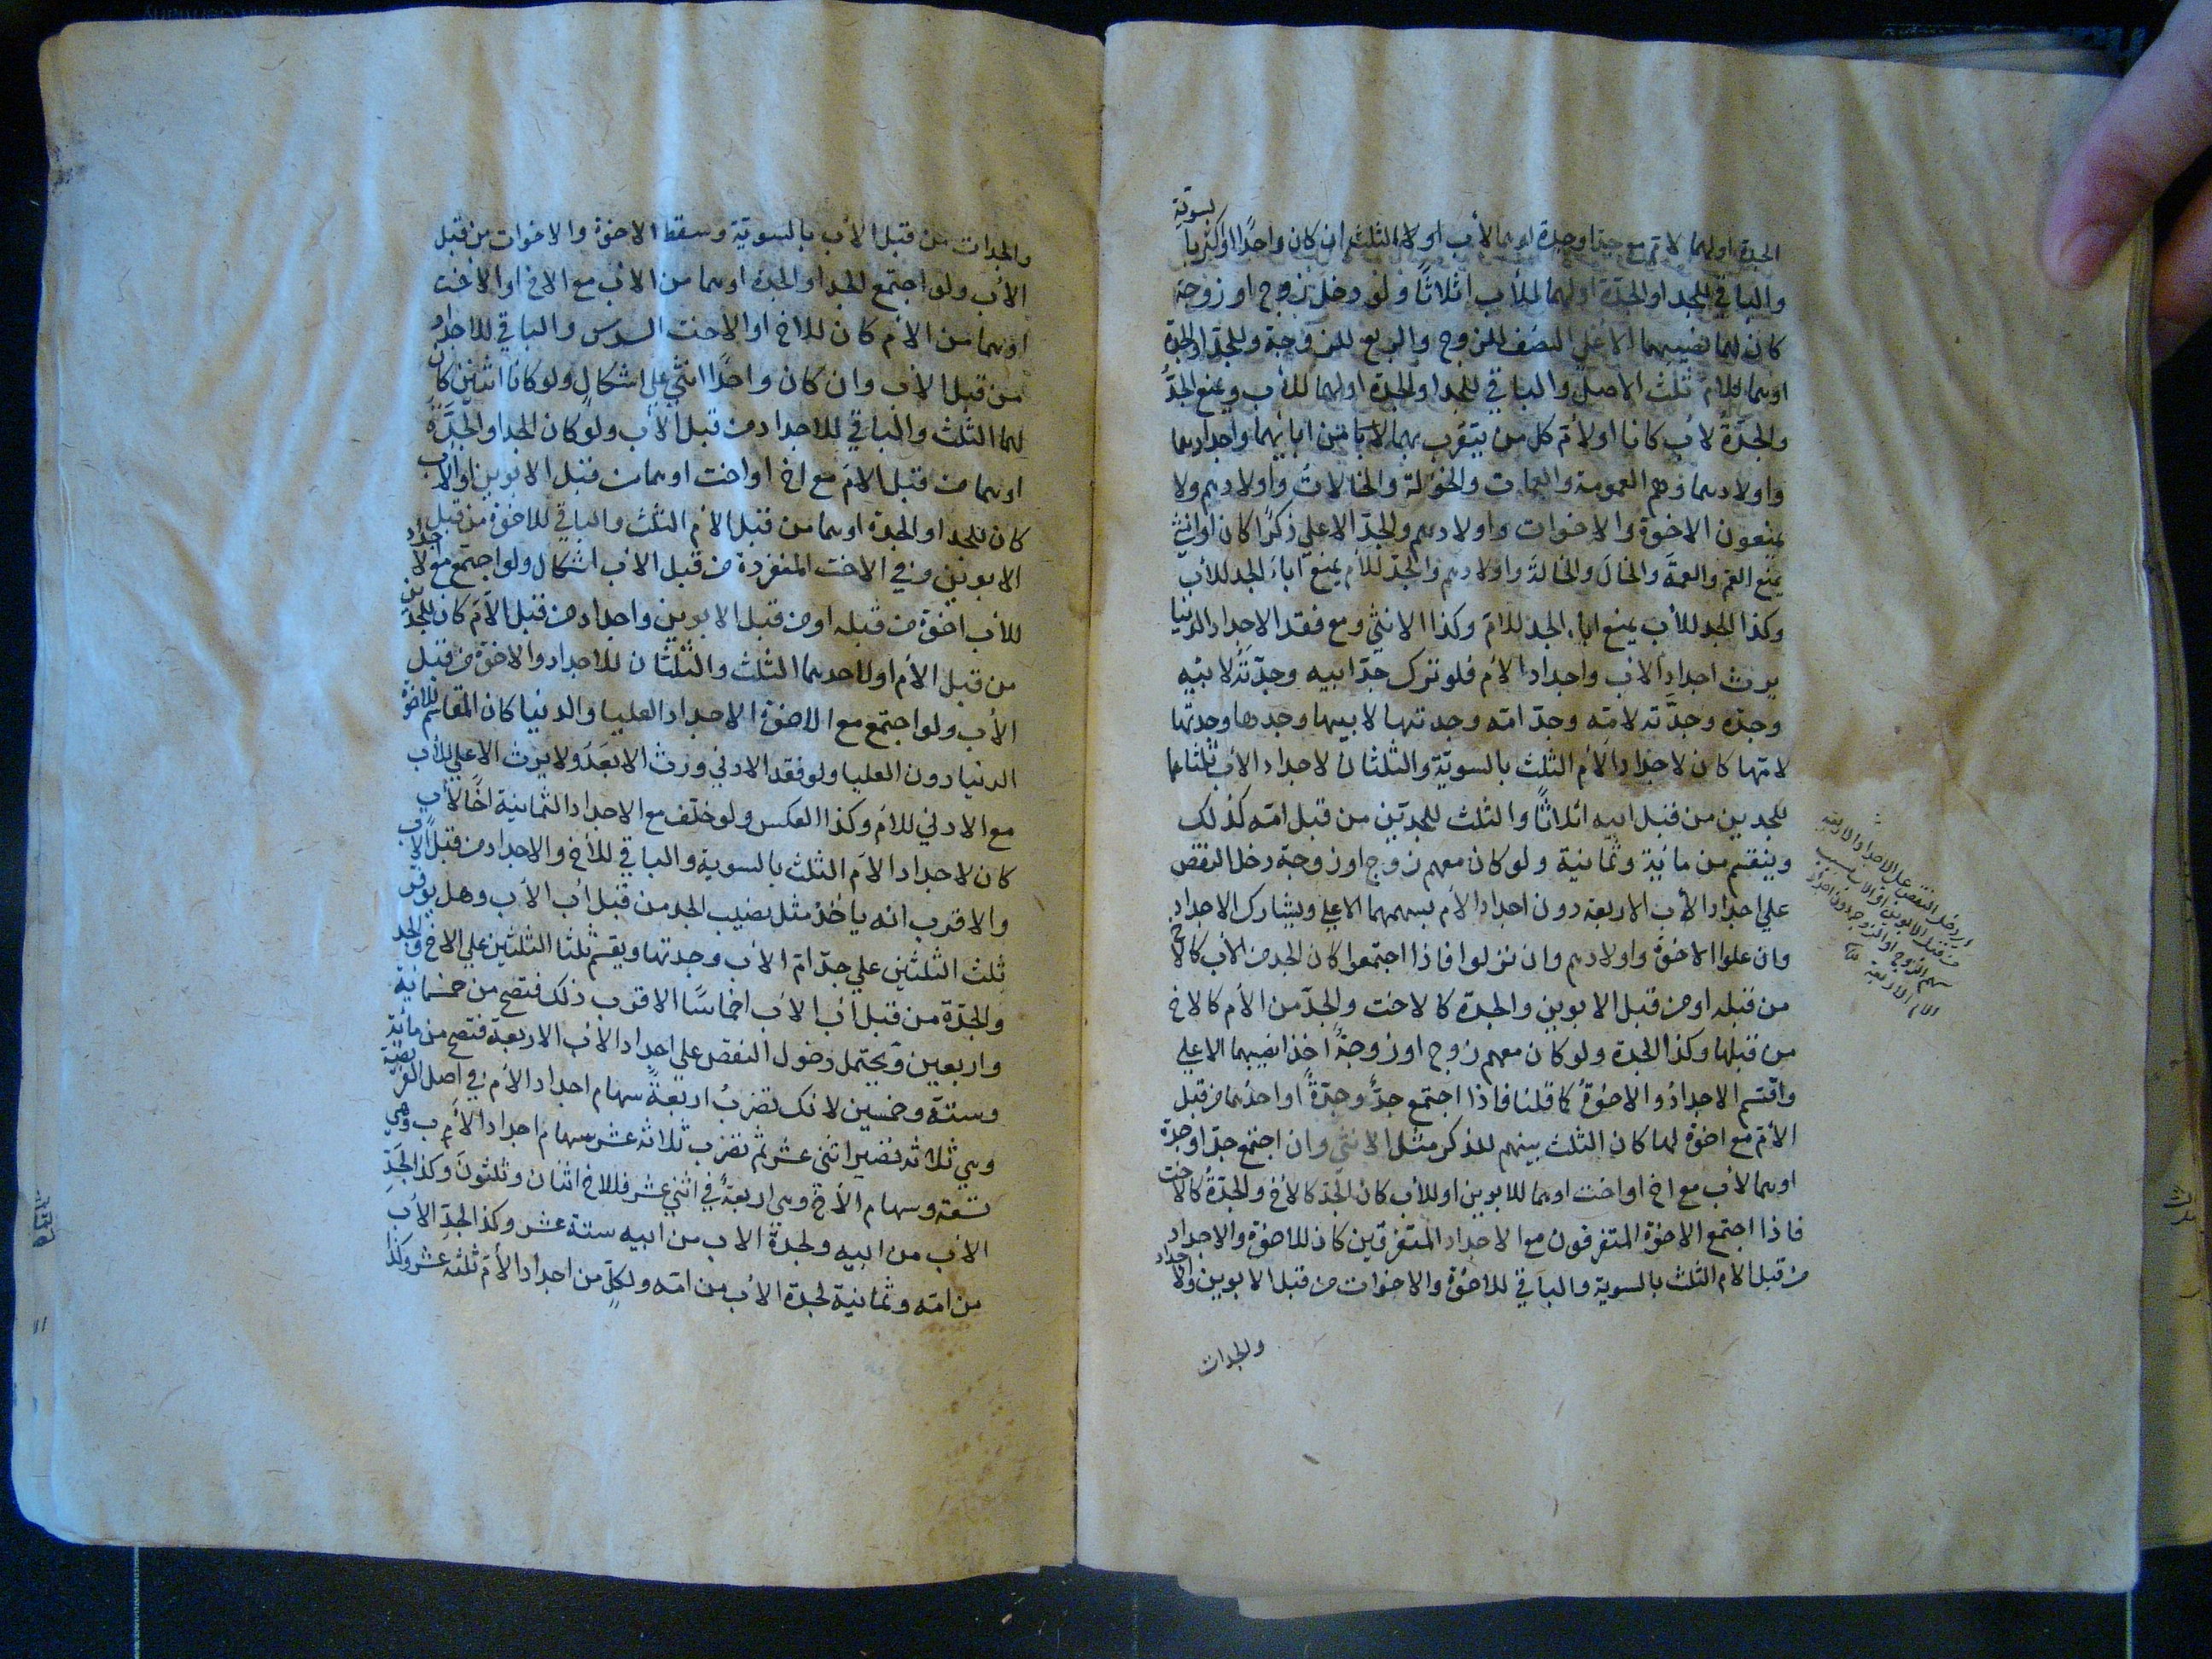 الجدة او لهما لام مع جد او جدة او هما لأب او لا الثلث ان كان واحدًا او اكثر بالسوية
والباقي للجد او الجدة او لهما للأب اثلاثًا ولو دخل زوج او زوجة
كان لهما نصيبهما الأعلي النصف للزوج والربع للزوجة وللجد او الجدة
اوهما للام ثلث الاصل والباقي للجد او الجدة او لهما للأب ويمنع الجدُّ
والجدَّةُ لأب كانا او لأم كل من يتقرب بهما لا بامن ابائهما واجدادهما
واولادهما وهم العمومة والعمات والخؤلة والخالات واولادهم ولا
يمنعون الاخوة والاخوات واولادهم والجدّ الاعلي ذكرًا كان او انثي
يمنع العم والعمة والخالَ والخالةَ واولادهم والجدّ للأم يمنع اباءَ الجد للأب
وكذا الجد للأب يمنع اباء الجد للام وكذا الانثي ومع فقد الاجداد الدنيا
يرث اجداد الاب واجداد الأم فلو ترك جدّ ابيه وجدّتَهُ لابيه
وجدّه وجدَّته لامه وجدّ امه وجدتها لابيها وجدها وجدتها
لامها كان لاجداد الأم الثلث بالسويّة والثلثان لاجداد الأب ثلثاهما
للجدين من قبل ابيه اثلاثًا والثلث للجدّين من قبل امه كذلك
وينقسم من مائة وثمانية ولو كان معهم زوج او زوجة دخل النقص
علي اجداد الأب الاربعة دون اجداد الأم بسهمهما الاعلي ويشارك الاجداد
وان علوا الاخوة واولادهم وان نزلوا فاذا اجتمعوا كان الجد من الأب كالاخ
من قبله او من قبل الابوين والجدة كالاخت والجدّ من الأم كالاخ
من قبلها وكذا الجدة ولو كان معهم زوج او زوجةٌ اخذا نصيبهما الاعلي
واقتسم الاجدادُ والاخوةُ كما قلنا فاذا اجتمع جدٌّ وجدّةٌ او احدهما من قبل
الأم مع اخوة لها كان الثلث بينهم للذكر مثل الانثي وان اجتمع جدّ او جدة
اوهما لأب مع اخ او اخت اوهما للابوين او للأب كان الجدّ كالأخ والجدّةُ كالاخت
فاذا اجتمع الاخوة المتفرقون مع الاجداد المتفرقين كان للاخوة والاجداد
من قبل الام الثلث بالسوية والباقي للاخوة والاخوات من قبل الابوين والاجداد
والجدات
اي دخل النقص علي الاجداد الاربعة
من قبل الابوين او الاب بسبب
سهم الزوج او الزوجة دون اجداد
الام الاربعة
والجدات من قبل الأب بالسويّة وسقط الاخوة والاخوات من قبل
الأب ولو اجتمع الجد او الجدة اوهما من الأب مع الاخ او الأخت
اوهما من الأم كان للاخ او الاخت السدس والباقي للاجداد
من قبل الأب وان كان واحدًا انثي علي اشكال ولو كانا اثنين كان
لهما الثلث والباقي للاجداد من قبل الأب ولو كان الجد او الجَدَّة
اوهما من قبل الام مع اخ او اخت اوهما من قبل الابوين او الأب
كان للجد او الجدة اوهما من قبل الأم الثلث والباقي للاخوة من قبل
الابوين وفي الاخت المنفردة من قبل الأب اشكال ولو اجتمع مع الأجداد
للأب اخوة من قبله او من قبل الابوين واجداد من قبل الأم كان للجدين
من قبل الأم او لاحدهما الثلث والثلثان للاجداد والاخوة من قبل
الأب ولو اجتمع مع الاخوة الاجداد العليا والدنيا كان المقاسم للاخوة
الدنيا دون العليا ولو فقد الادني ورث الابعَدُ ولا يرث الاعلي للأب
مع الادني للأم وكذا العكس ولو خلّف مع الاجداد الثمانية اخًا لأب
كان لاجداد الأم الثلث بالسوية والباقي للأخ والاجداد من قبل الاب
والاقرب انه يأخذ مثل نصيب الجد من قبل أب الأب وهل يوفر
ثلث الثلثين علي جدّ ام الأب وجدتها ويقسم ثلثا الثلثين علي الاخ والجد
والجدّة من قبل أب الأب اخماسًا الاقرب ذلك فتصح من خمسمائة
واربعين ويحتمل دخول النقص علي اجداد الأب الاربعة فتصح من مائة
وستة وخمسين لانك تضرب اربعةً سهام اجداد الأم في اصل الفريضة
وهي ثلاثة تصير اثني عشر ثم تضرب ثلاثة عشر سهام اجداد الأب وهي
تسعة وسهام الأخ وهي اربعةٌ في اثني عشر فللاخ اثنان وثلثون وكذا لجَدِّ
الأب من ابيه ولجدة الاب من ابيه ستة عشر وكذا لجدّ الأب
من امه وثمانية لجدة الأب من امه ولكلٍّ من اجداد الأمّ ثلثة عشر وكذا